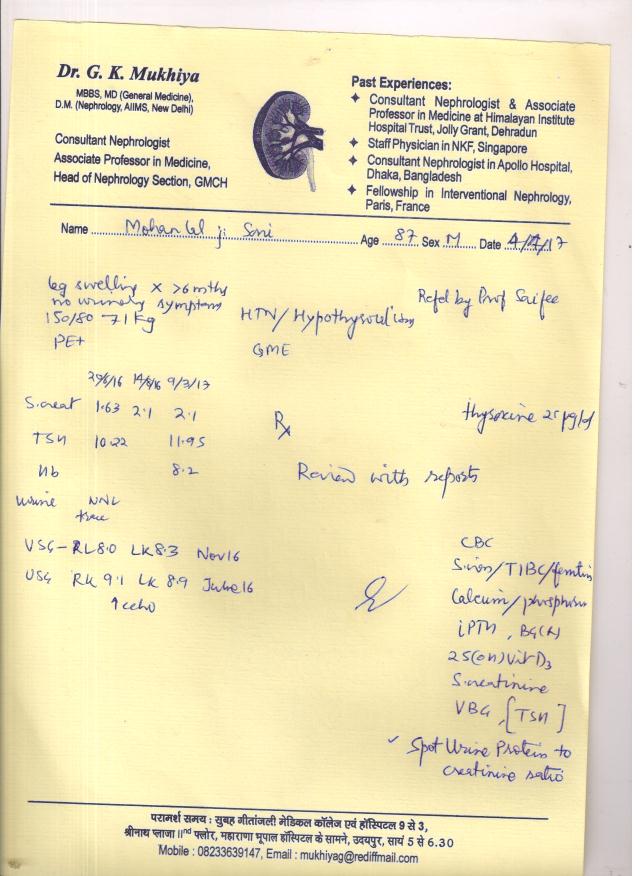 Dr. G. K. Mukhiya
MBBS, MD (General Medicine),
D.M. (Nephrology, AIIMS, New Delhi)
Consultant Nephrologist
Associate Professor in Medicine,
Head of Nephrology Section, GMCH
Past Experiences:
Consultant Nephrologist & Associate
Professor in Medicine at Himalayan Institute
Hospital Trust, Jolly Grant, Dehradun
Staff Physician in NKF, Singapore
Consultant Nephrologist in Apollo Hospital,
Dhaka, Bangladesh
Fellowship in Interventional Nephrology,
Paris, France
Name Mohan lal ji Soni Age 87 Sex M Date 4/4/17
leg swelling x >6 mths
no urinary symptom
150/80 71 kg
PE+
HTN/Hypothyroidism
GME
Refd by Prof Saifee
29/6/16 14/8/16 9/3/17
S.creat 1.63 2.1 2.1
TSH 10.22 11.95
Hb 8.2
Urine NNL
trace
Rx
thyroxine 25 µg/d
Review with reports
USG - RL 8.0 LK 8.3 Nov 16
USG RK 9.1 LK 8.9 June 16
↑ echo
CBC
S.iron/TIBC/ferritin
Calcium/phosphorus
iPTH,
25(OH)Vit D3
S.creatinine
VBG, [TSH]
✓ Spot Urine Protein to
creatinine ratio
परामर्श समय : सुबह गीतांजली मेडिकल कॉलेज एवं हॉस्पिटल 9 से 3,
श्रीनाथ प्लाजा IInd फ्लोर, महाराणा भूपाल हॉस्पिटल के सामने, उदयपुर, सायं 5 से 6.30
Mobile : 08233639147, Email : mukhiyag@rediffmail.com